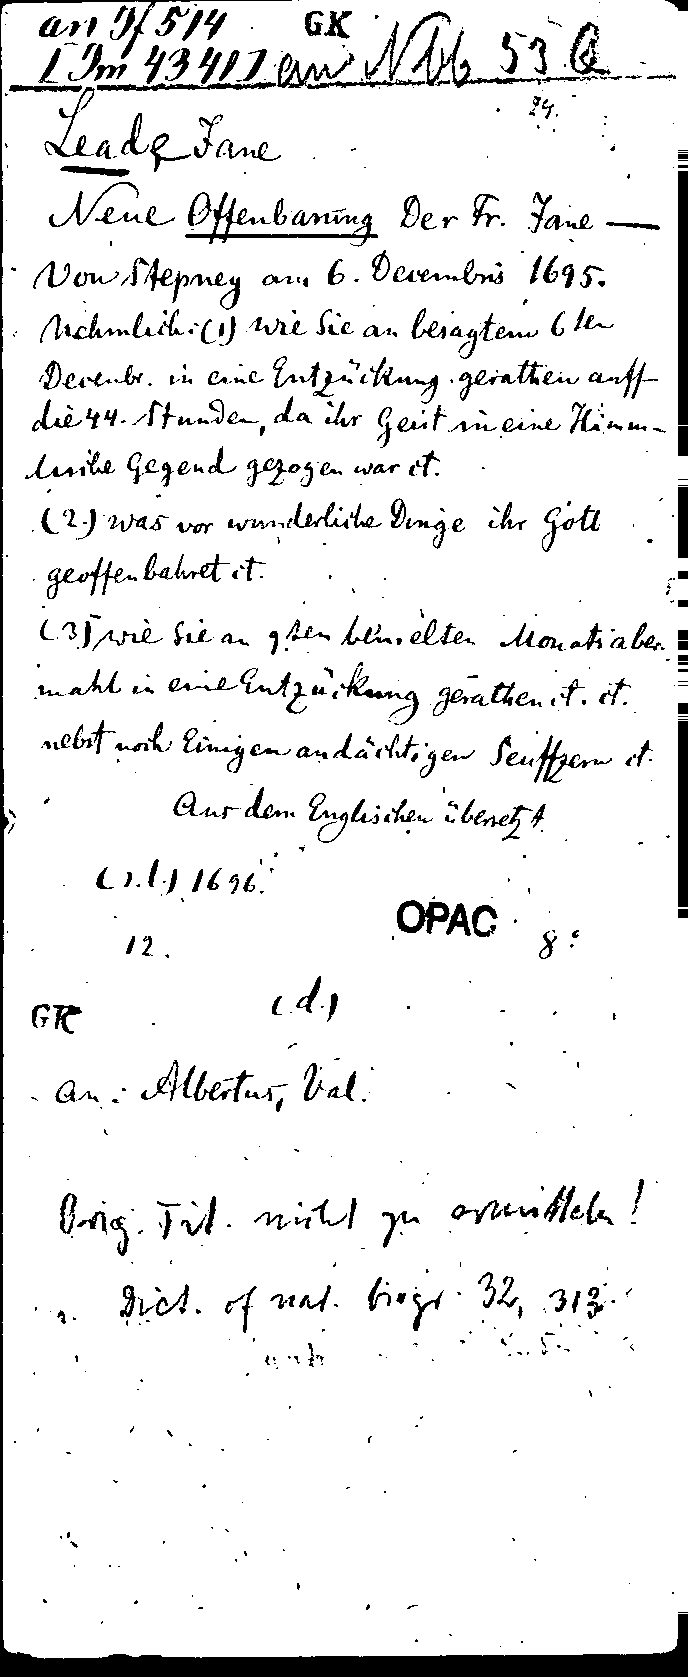 an If 514 GK
[Im 4341] an Nbb 53 Q
24.
Leade, Jane
Neue Offenbarung Der Fr. Jane —
Von Stepney am 6. Decembris 1695.
Nehmlich: (1) wie Sie an besagtem 6ten
Decenbr. in eine Entzückung gerathen auff
die 44. Stunden, da ihr Geist in eine Himm-
lische Gegend gezogen war ct.
(2.) was vor wunderliche Dinge ihr Gott
geoffenbahret ct.
(3) wie Sie an 9ten bemelten Monats aber-
mahl in eine Entzückung gerathen ct. ct.
nebst noch Einigen andächtigen Seuffzern ct.
Aus dem Englischen übersetzt.
(s.l.) 1696.
12. OPAC 8°
GK (d.)
an: Albertus, Val.
Orig. Tit. nicht zu ermitteln!
s. Dict. of nat. biogr. 32, 313.